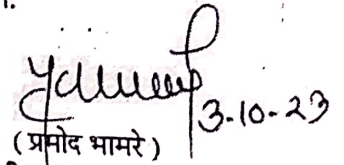 3-10-23
( प्रमोद भामरे )